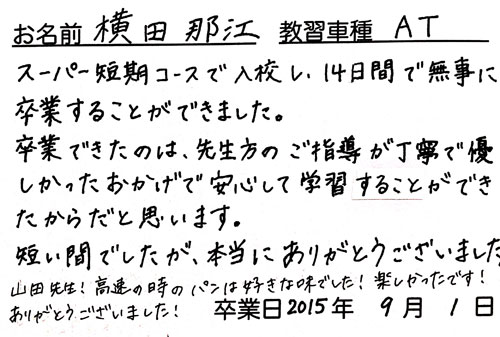 お名前 横田 那江 教習車種 AT
スーパー短期コースで入校し、14日間で無事に
卒業することができました。
卒業できたのは、先生方のご指導が丁寧で優
しかったおかげで安心して学習することができ
たからだと思います。
短い間でしたが、本当にありがとうございました
山田先生！高速の時のパンは好きな味でした！楽しかったです！
ありがとうございました！ 卒業日2015年 9月 1日